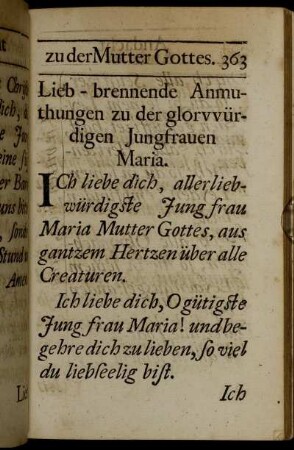 zu der Mutter Gottes. 363
Lieb-brennende Anmu-
thungen zu der glorvvür-
digen Jungfrauen
Maria.
ICh liebe dich, allerlieb-
würdigste Jungfrau
Maria Mutter Gottes, aus
gantzem Hertzen über alle
Creaturen.
Ich liebe dich, O gütigste
Jungfrau Maria! und be-
gehre dich zu lieben, so viel
du liebseelig bist.
Ich